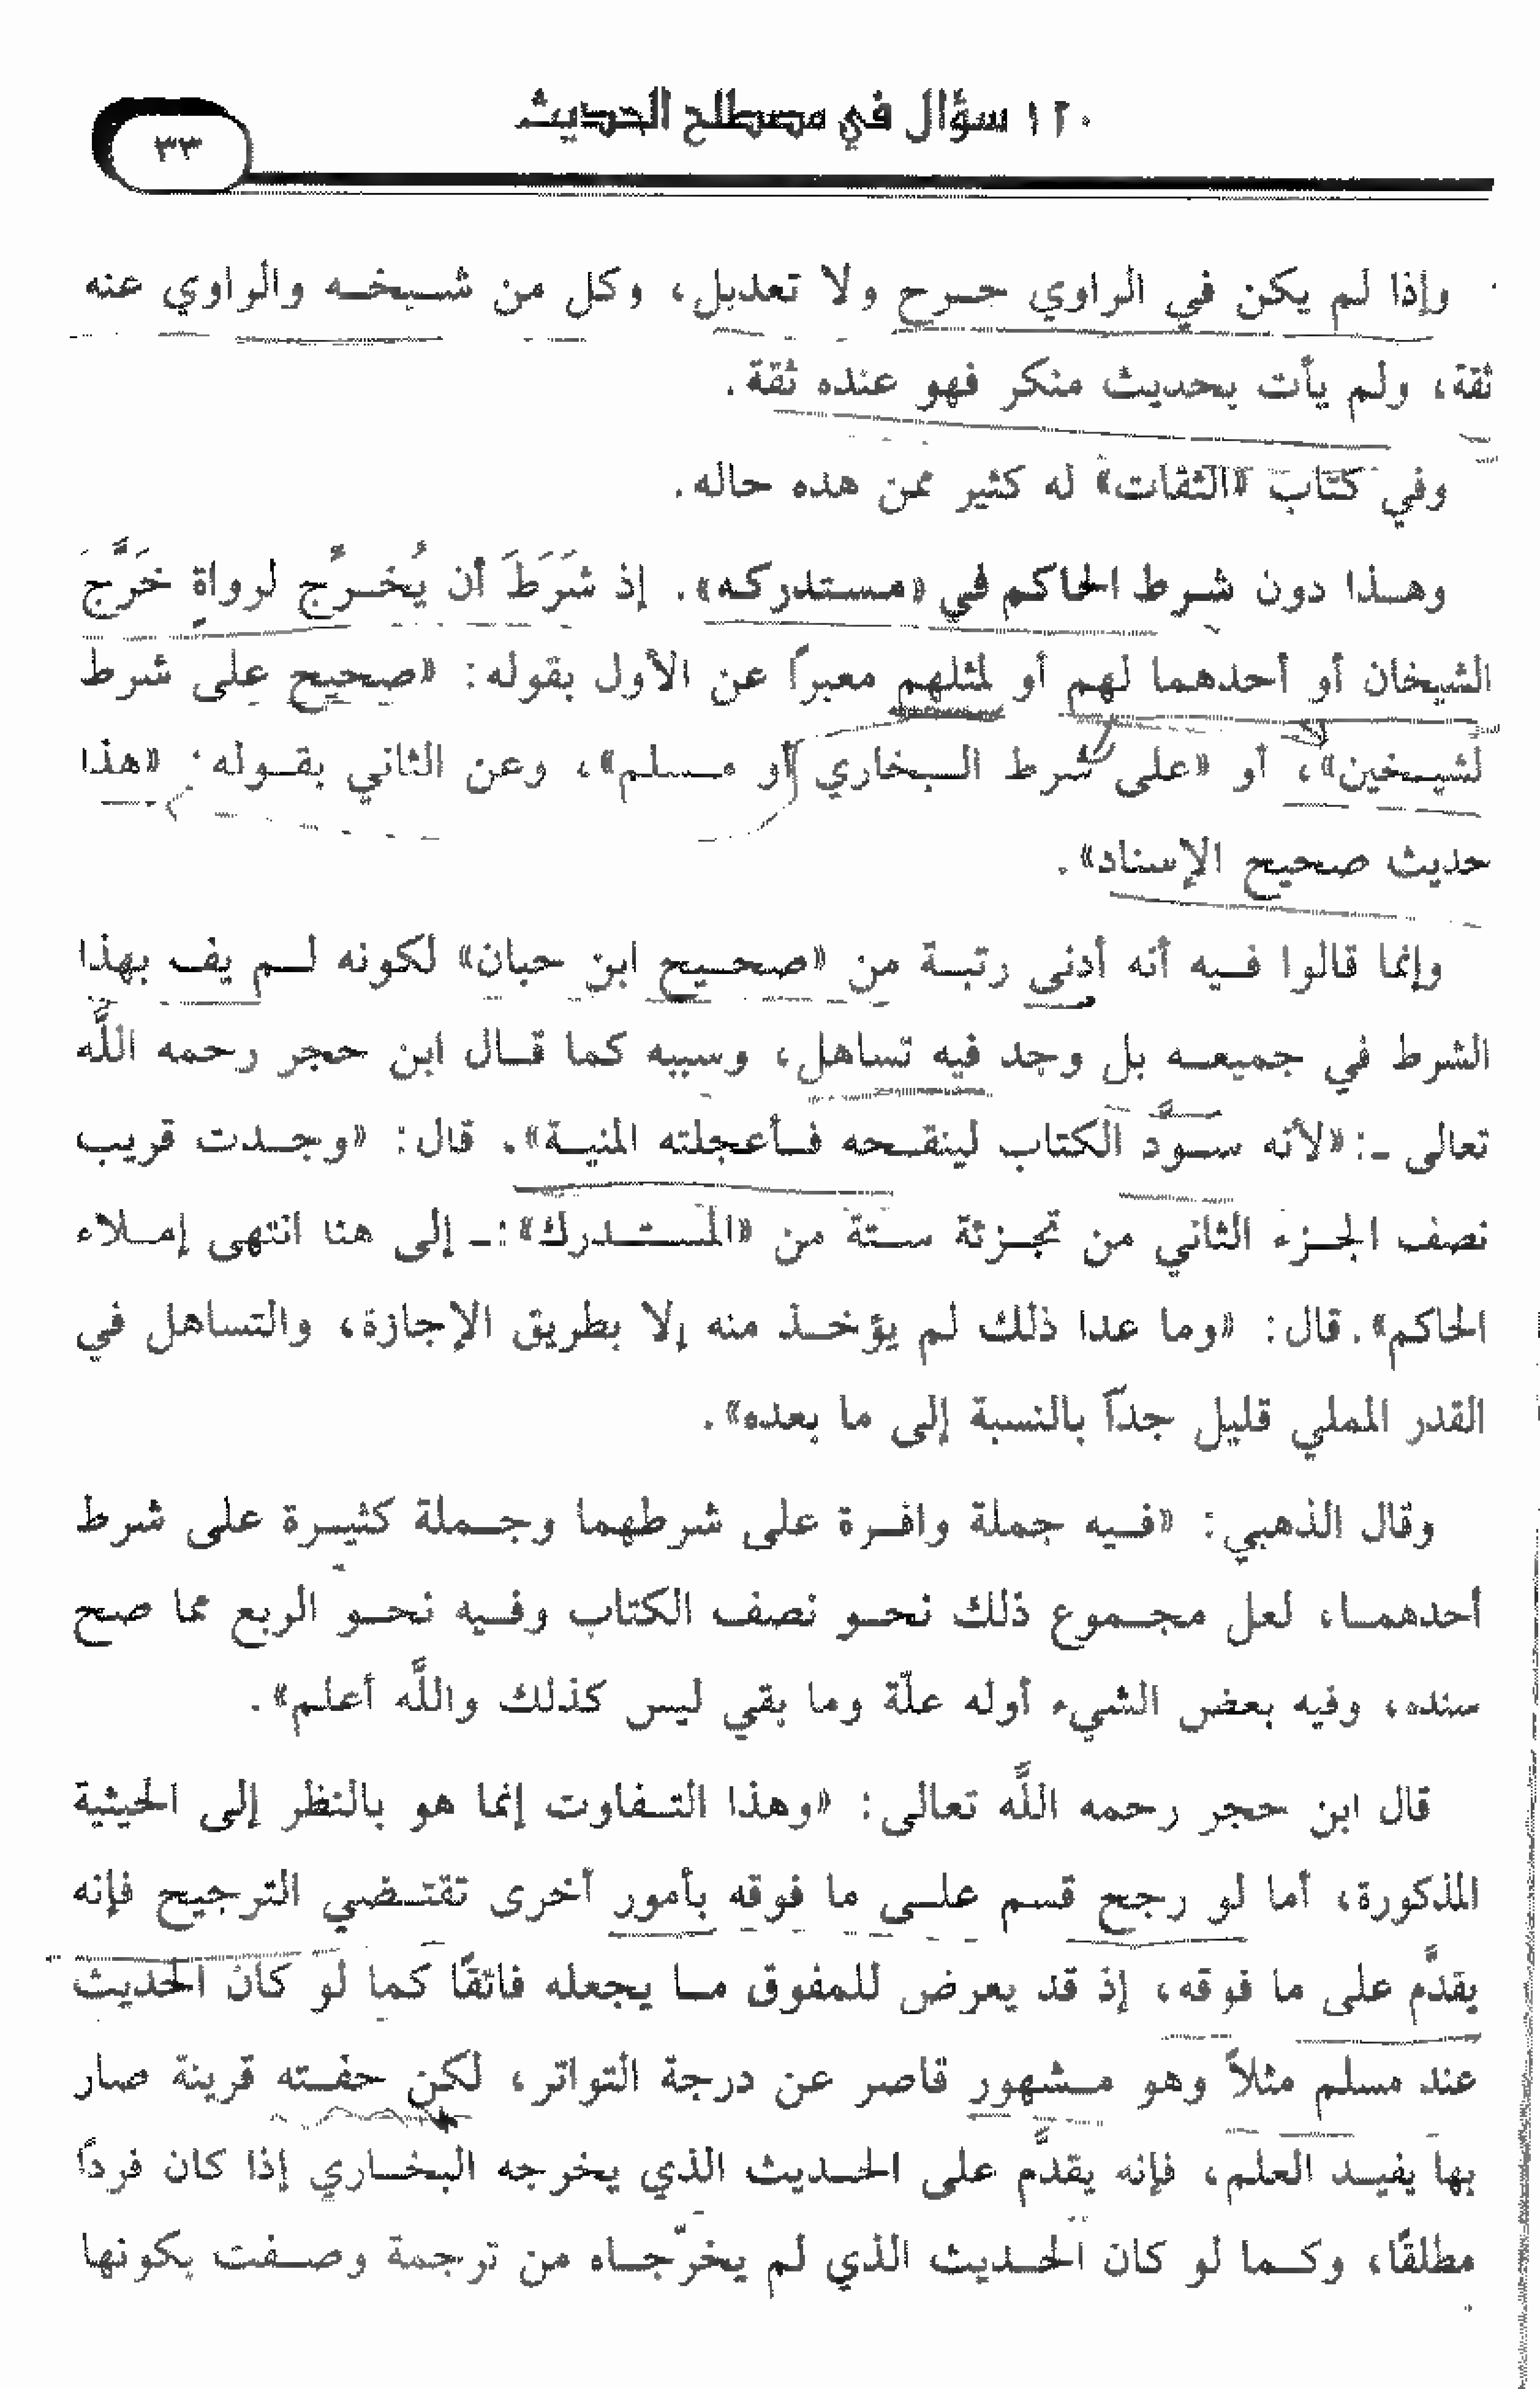 ١٢٠ سؤال في مصطلح الحديث
٣٣
وإذا لم يكن في الراوي جرح ولا تعديل، وكل من شيخه والراوي عنه
ثقة، ولم يأت بحديث منكر فهو عنده ثقة.
وفي كتاب «الثقات» له كثير ممن هذه حاله.
وهذا دون شرط الحاكم في «مستدركه». إذ شَرَطَ أن يُخرَّج لرواةٍ خَرَّجَ
الشيخان أو أحدهما لهم أو لمثلهم معبراً عن الأول بقوله: «صحيح على شرط
لشيخين»، أو «على شرط البخاري أو مسلم»، وعن الثاني بقوله: «هذا
حديث صحيح الإسناد».
وإنما قالوا فيه أنه أدنى رتبة من «صحيح ابن حبان» لكونه لم يف بهذا
الشرط في جميعه بل وجد فيه تساهل، وسببه كما قال ابن حجر رحمه اللَّه
تعالى ـ: «لأنه سوَّد الكتاب لينقحه فأعجلته المنية». قال: «وجدت قريب
نصف الجزء الثاني من تجزئة ستة من «المستدرك»: ـ إلى هنا انتهى إملاء
الحاكم». قال: «وما عدا ذلك لم يؤخذ منه إلا بطريق الإجازة، والتساهل في
القدر المملي قليل جداً بالنسبة إلى ما بعده».
وقال الذهبي: «فيه جملة وافرة على شرطهما وجملة كثيرة على شرط
أحدهما، لعل مجموع ذلك نحو نصف الكتاب وفيه نحو الربع مما صح
سنده، وفيه بعض الشيء أوله علّة وما بقي ليس كذلك واللَّه أعلم».
قال ابن حجر رحمه اللَّه تعالى: «وهذا التفاوت إنما هو بالنظر إلى الحيثية
المذكورة، أما لو رجح قسم على ما فوقه بأمور أخرى تقتضي الترجيح فإنه
يقدَّم على ما فوقه، إذ قد يعرض للمفوق ما يجعله فائقًا كما لو كان الحديث
عند مسلم مثلاً وهو مشهور قاصر عن درجة التواتر، لكن حفته قرينة صار
بها يفيد العلم، فإنه يقدَّم على الحديث الذي يخرجه البخاري إذا كان فرداً
مطلقًا، وكما لو كان الحديث الذي لم يخرّجاه من ترجمة وصفت بكونها